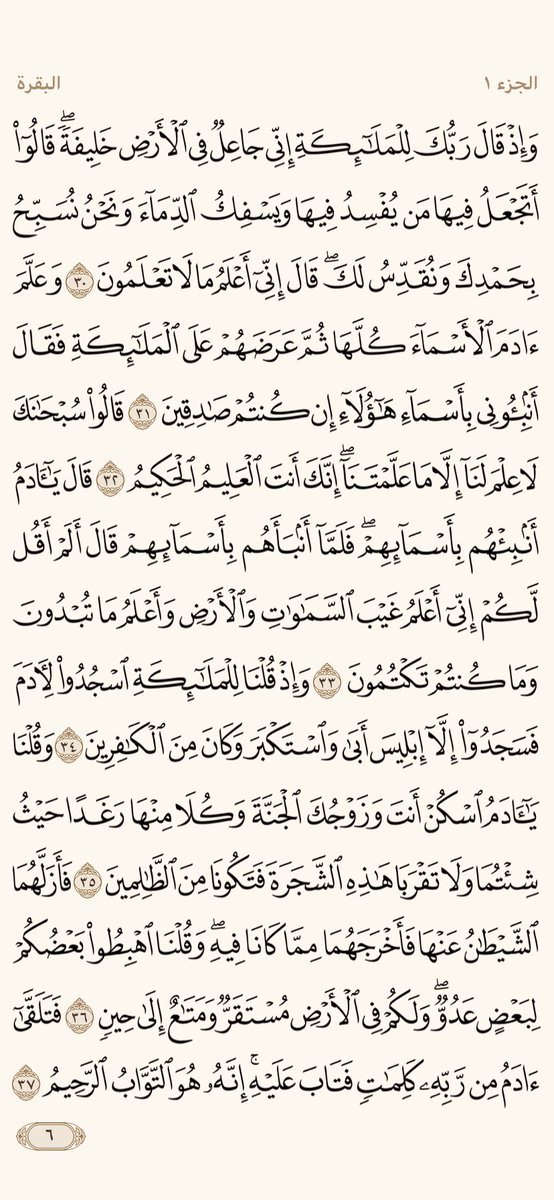 الجزء ١
البقرة
وَإِذۡ قَالَ رَبُّكَ لِلۡمَلَٰٓئِكَةِ إِنِّي جَاعِلٞ فِي ٱلۡأَرۡضِ خَلِيفَةٗۖ قَالُوٓاْ
أَتَجۡعَلُ فِيهَا مَن يُفۡسِدُ فِيهَا وَيَسۡفِكُ ٱلدِّمَآءَ وَنَحۡنُ نُسَبِّحُ
بِحَمۡدِكَ وَنُقَدِّسُ لَكَۖ قَالَ إِنِّيٓ أَعۡلَمُ مَا لَا تَعۡلَمُونَ ٣٠ وَعَلَّمَ
ءَادَمَ ٱلۡأَسۡمَآءَ كُلَّهَا ثُمَّ عَرَضَهُمۡ عَلَى ٱلۡمَلَٰٓئِكَةِ فَقَالَ
أَنۢبِـُٔونِي بِأَسۡمَآءِ هَٰٓؤُلَآءِ إِن كُنتُمۡ صَٰدِقِينَ ٣١ قَالُواْ سُبۡحَٰنَكَ
لَا عِلۡمَ لَنَآ إِلَّا مَا عَلَّمۡتَنَآۖ إِنَّكَ أَنتَ ٱلۡعَلِيمُ ٱلۡحَكِيمُ ٣٢ قَالَ يَٰٓـَٔادَمُ
أَنۢبِئۡهُم بِأَسۡمَآئِهِمۡۖ فَلَمَّآ أَنۢبَأَهُم بِأَسۡمَآئِهِمۡ قَالَ أَلَمۡ أَقُل
لَّكُمۡ إِنِّيٓ أَعۡلَمُ غَيۡبَ ٱلسَّمَٰوَٰتِ وَٱلۡأَرۡضِ وَأَعۡلَمُ مَا تُبۡدُونَ
وَمَا كُنتُمۡ تَكۡتُمُونَ ٣٣ وَإِذۡ قُلۡنَا لِلۡمَلَٰٓئِكَةِ ٱسۡجُدُواْ لِأٓدَمَ
فَسَجَدُوٓاْ إِلَّآ إِبۡلِيسَ أَبَىٰ وَٱسۡتَكۡبَرَ وَكَانَ مِنَ ٱلۡكَٰفِرِينَ ٣٤ وَقُلۡنَا
يَٰٓـَٔادَمُ ٱسۡكُنۡ أَنتَ وَزَوۡجُكَ ٱلۡجَنَّةَ وَكُلَا مِنۡهَا رَغَدًا حَيۡثُ
شِئۡتُمَا وَلَا تَقۡرَبَا هَٰذِهِ ٱلشَّجَرَةَ فَتَكُونَا مِنَ ٱلظَّٰلِمِينَ ٣٥ فَأَزَلَّهُمَا
ٱلشَّيۡطَٰنُ عَنۡهَا فَأَخۡرَجَهُمَا مِمَّا كَانَا فِيهِۖ وَقُلۡنَا ٱهۡبِطُواْ بَعۡضُكُمۡ
لِبَعۡضٍ عَدُوّٞۖ وَلَكُمۡ فِي ٱلۡأَرۡضِ مُسۡتَقَرّٞ وَمَتَٰعٌ إِلَىٰ حِينٖ ٣٦ فَتَلَقَّىٰٓ
ءَادَمُ مِن رَّبِّهِۦ كَلِمَٰتٖ فَتَابَ عَلَيۡهِۚ إِنَّهُۥ هُوَ ٱلتَّوَّابُ ٱلرَّحِيمُ ٣٧
٦